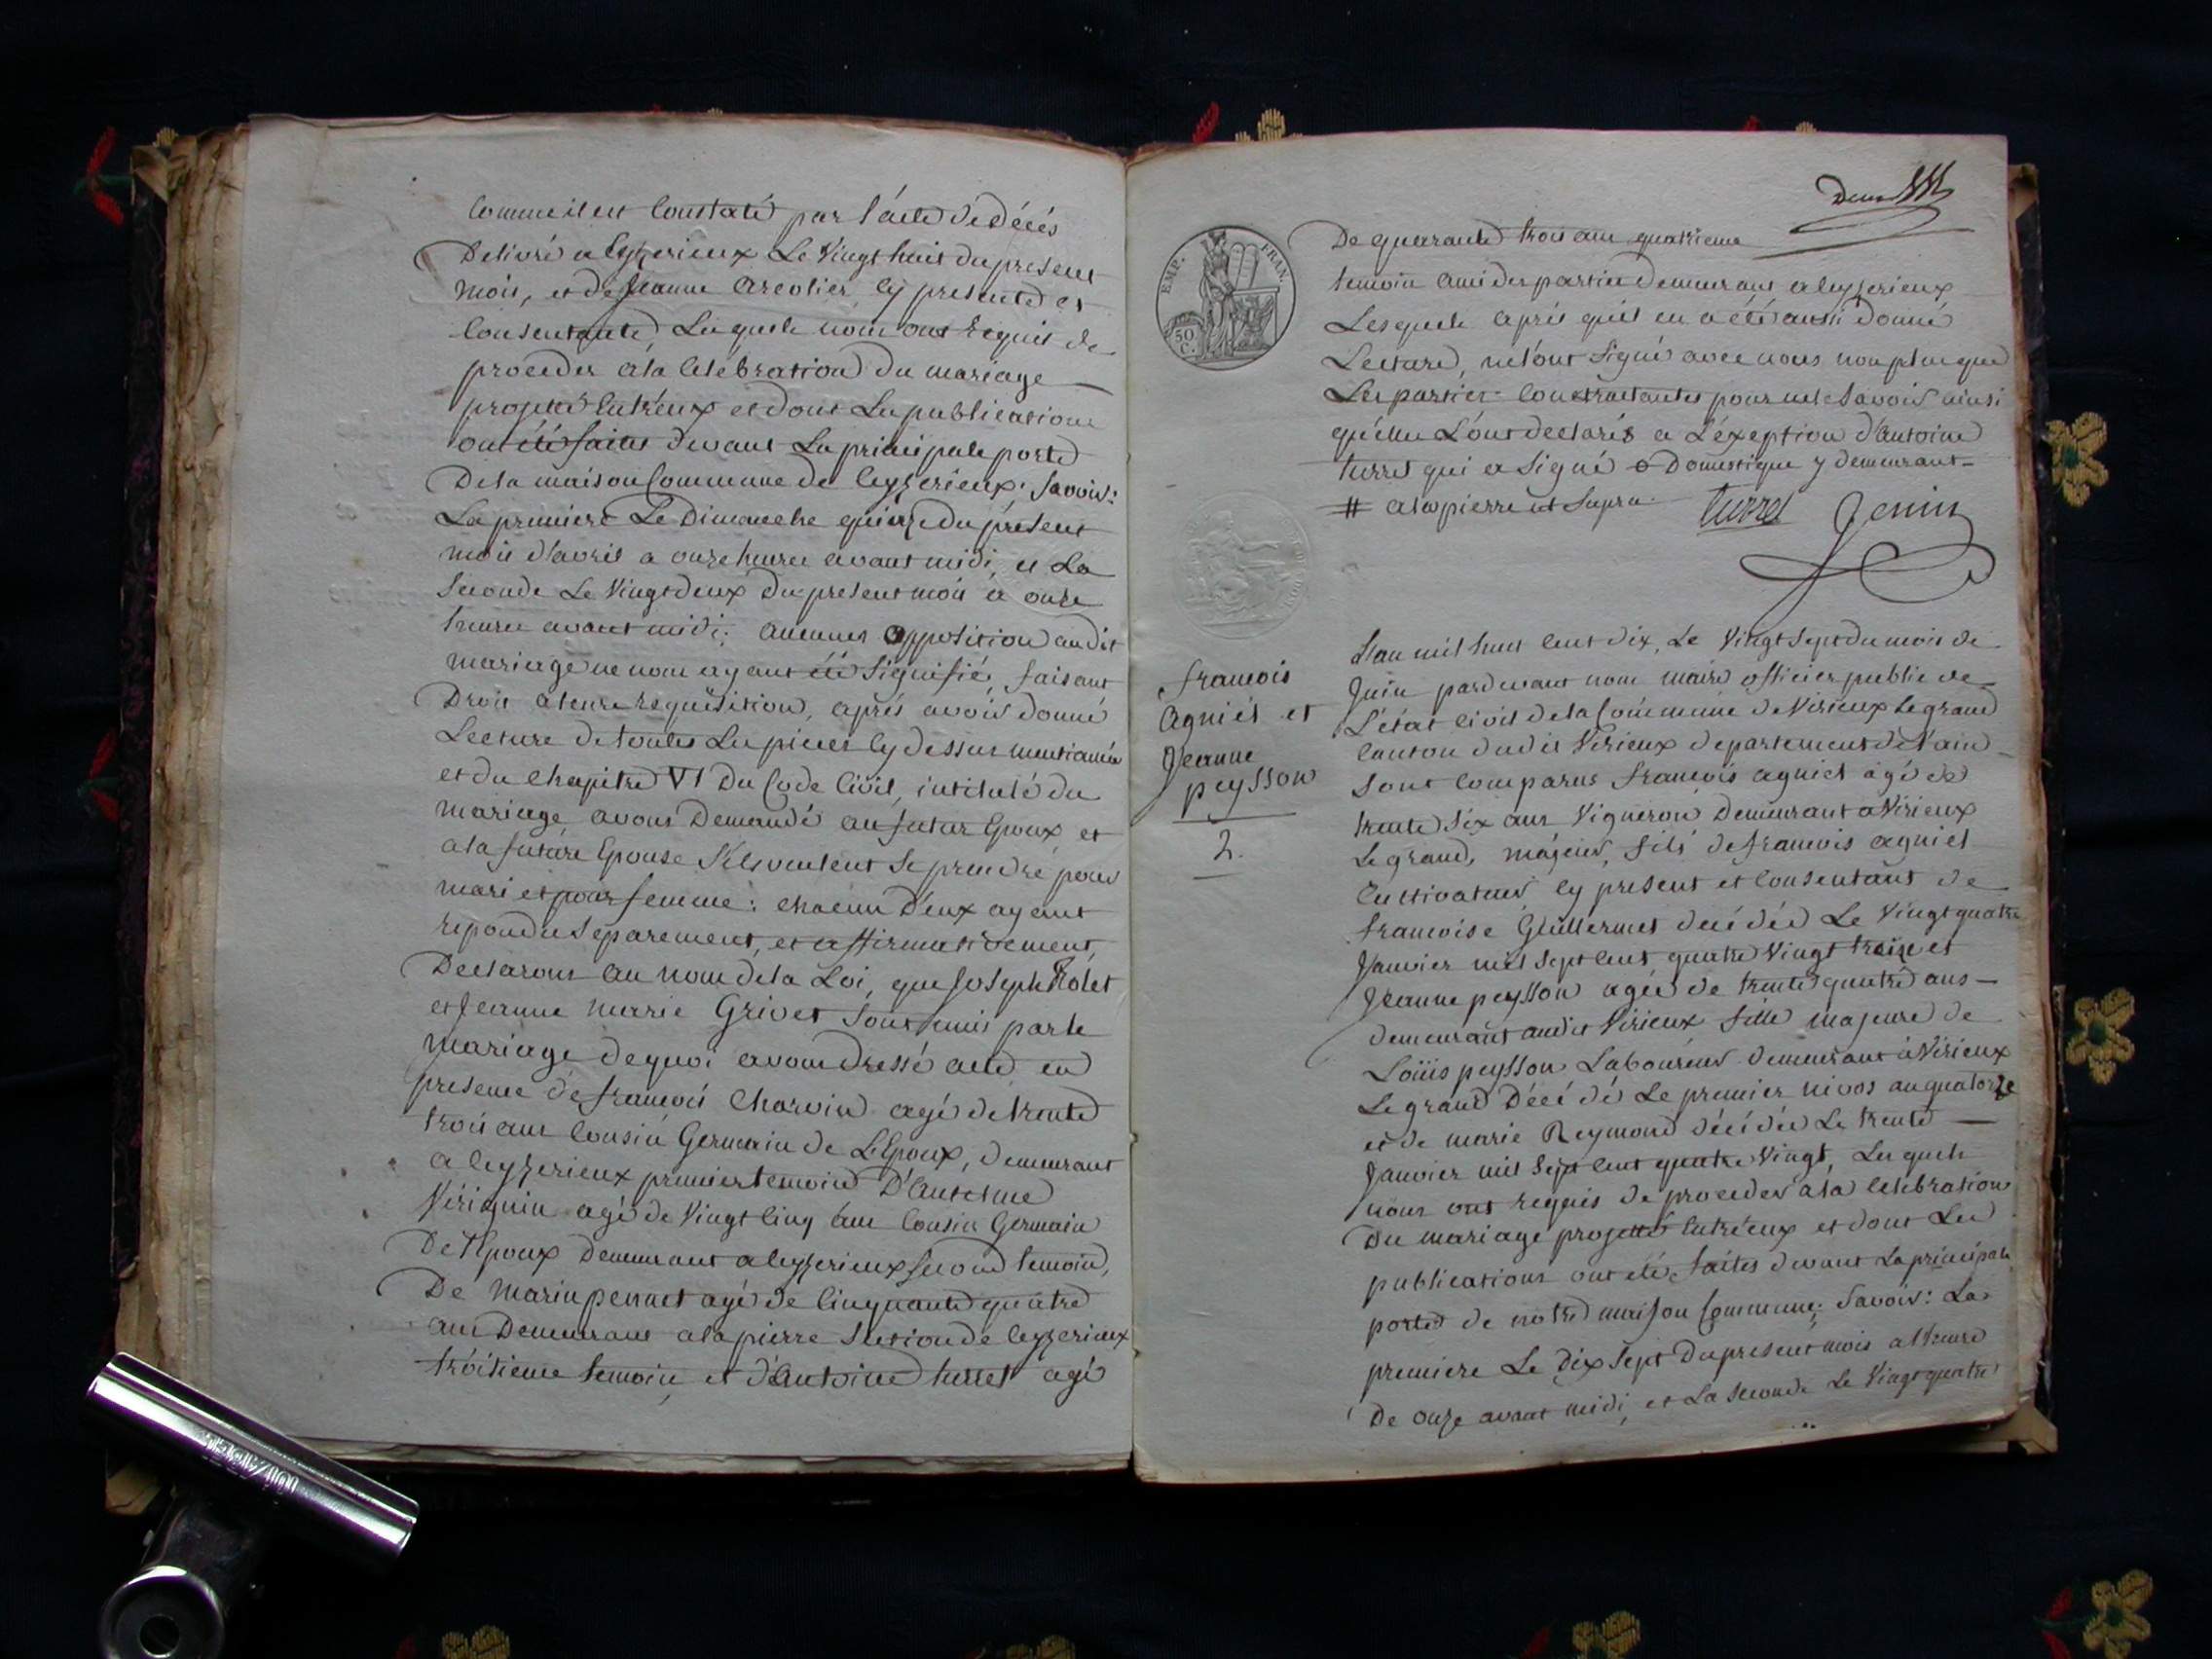 Comme il est Constaté par l'acte de décés
Delivré a Ceyzerieux Le Vingt huit du present
mois, et de Jeanne Creolier cy presente et
Consentante, Lesquels nous ont Requis de
proceder a la Celébration du mariage
projetté Entr'eux et dont Les publications
ont été faites devant La principale porte
De la maison Commune de Ceyzerieux. Savoir:
La premiere Le Dimanche quinze du présent
mois d'avril a onze heures avant midi, et La
Seconde Le Vingt deux Du present mois a onze
heures avant midi; aucunes opposition audit
mariage ne nous ayant été Signifié, faisant
Droit a leur requisition, aprés avoir donné
Lecture de toutes Les pieces cy dessus mentionnées
et du Chapitre VI Du Code Civil, intitulé du
mariage avons Demandé au futur Epoux et
a la future Epouse S'ils veulent se prendre pour
mari et pour femme: chacun D'eux ayant
repondu Séparement, et affirmativement,
Declarons au nom de la Loi, que Joseph Rolet
et Jeanne marie Grivet Sont unis par le
mariage de quoi avons dressé acte en
presence de francois Charvin agé de trente
trois ans Cousin Germain de L'Epoux, demeurant
a Ceyzerieux premier temoin D'Anselme
Veriquin agé de Vingt cinq ans Cousin Germain
De l'Epoux Demeurant a Ceyzerieux second temoin,
De marin pennet agé de Cinquante quatre
ans Demeurant a la pierre Section de Ceyzerieux
troisieme temoin, et d'Antoine turrel agé
Deux
EMP. FRAN.
50
C.
De quarante trois ans quatrieme
temoin ami des parties Demeurant a Ceyzerieux
Lesquels aprés qu'il en a été aussi donné
Lecture, ne l'ont Signé avec nous non plus que
Les parties Contractantes pour ne le Savoir ainsi
qu'elles L'ont declarés a L'éxeption d'Antoine
turrel qui a Signé # Domestique y demeurant
# a la pierre ut Supra. turrel Jenin
francois
Agniél et
Jeanne
peysson
2.
L'an mil huit Cent dix, Le Vingt Sept du mois de
Juin pardevant nous maire officier public de
L'état Civil de la Commune de Virieux Le grand
Canton dudit Virieux departement de l'ain
Sont Comparus francois agniel agé de
trente Six ans Vigneron Demeurant a Virieux
Le grand, majeur, fils de francois agniel
Cultivateur cy present et Consentant de
francoise Guillermet decédée Le Vingt quatre
Janvier mil Sept Cent quatre Vingt treize et
Jeanne peysson agée de trente quatre ans
demeurant audit Virieux fille majeure de
Loüis peysson Laboureur demeurant a Virieux
Le grand Décédé Le premier nivos an quatorze
et de marie Reymond décédée Le trente
Janvier mil Sept Cent quatre Vingt, Lesquels
nous ont requis de proceder a la Celebration
Du mariage projetté Entr'eux et dont Les
publications ont été faites devant La principale
porte de notre maison Commune; Savoir: La
premiere Le dix Sept Du present mois a l'heure
De onze avant midi, et La Seconde Le Vingt quatre